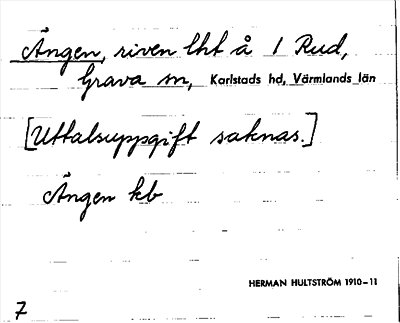 Ängen, riven lht å 1 Rud,
Grava sn, Karlstads hd, Värmlands län
[Uttalsuppgift saknas.]
Ängen kb
HERMAN HULTSTRÖM 1910-11
7